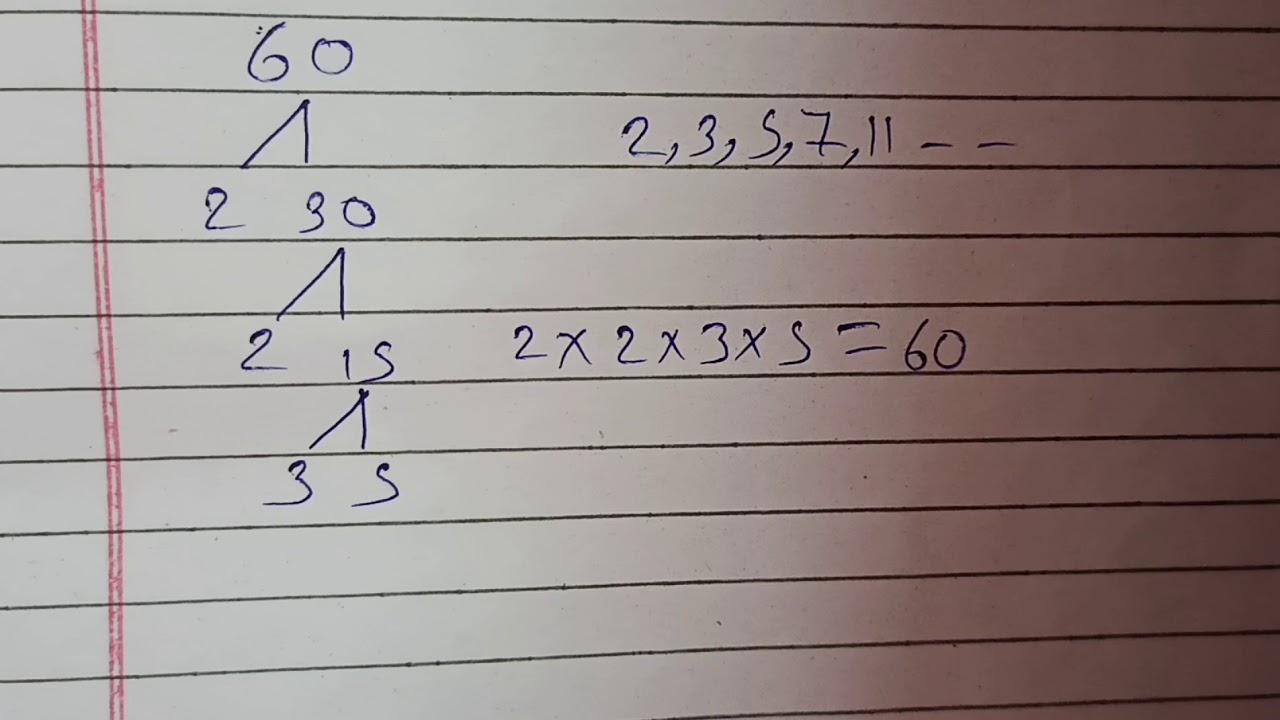 60
2, 3, 5, 7, 11 - -
2 30
2 15
2 x 2 x 3 x 5 = 60
3 5